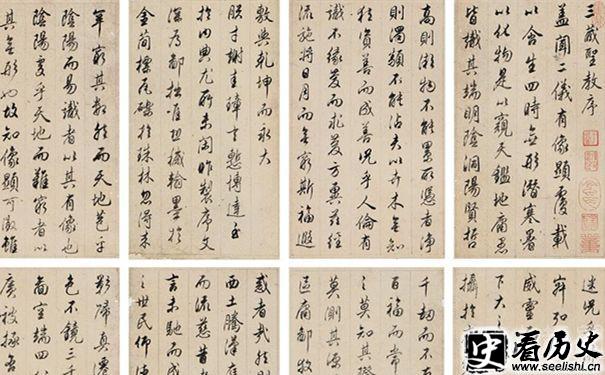 三藏聖教序
盖聞二儀有像顯覆載
以含生四時無形潜寒暑
以化物是以窺天鑑地庸愚
皆識其端明陰洞陽賢哲
高則微物不能累所憑者淨
則濁類不能沾夫以卉木無知
猶資善而成善況乎人倫有
識不緣慶而求慶方冀茲經
流施將日月而無窮斯福遐
敷與乾坤而永大
朕才謝珪璋言慙博達至
於内典尤所未閑昨製序文
深為鄙拙唯恐穢翰墨於
金簡標瓦礫於珠林忽得来
罕窮其數然而天地苞乎
陰陽而易識者以其有像也
陰陽處乎天地而難窮者以
其無形也故知像顯可徵雖
迷況乎
弘
威靈
下大之
攝於
千劫而不
百福而長
之莫知其際
莫測其源
區庸鄙投
惑者哉然則
西土騰漢庭
而流慈昔
言未馳而成
之世民仰德
影歸真遷
色不鏡三千
圖空端四八
廣被拯含
看历史
www.seelishi.cn